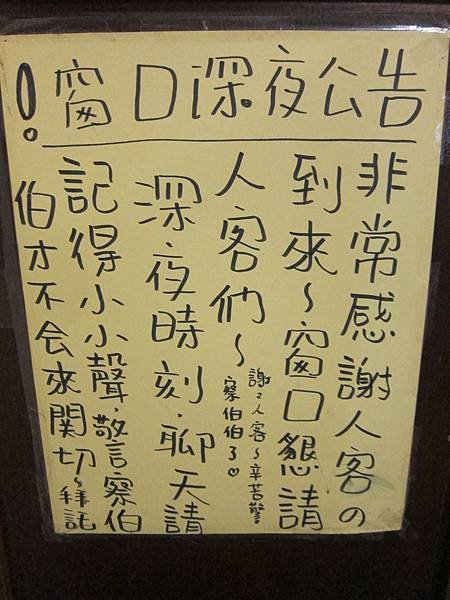 !窗口深夜公告
非常感謝人客の
到來~窗口懇請
人客們~
謝々人客~辛苦警
察伯伯了♡
深夜時刻.聊天請
記得小小聲.警察伯
伯才不会來関切~拜託